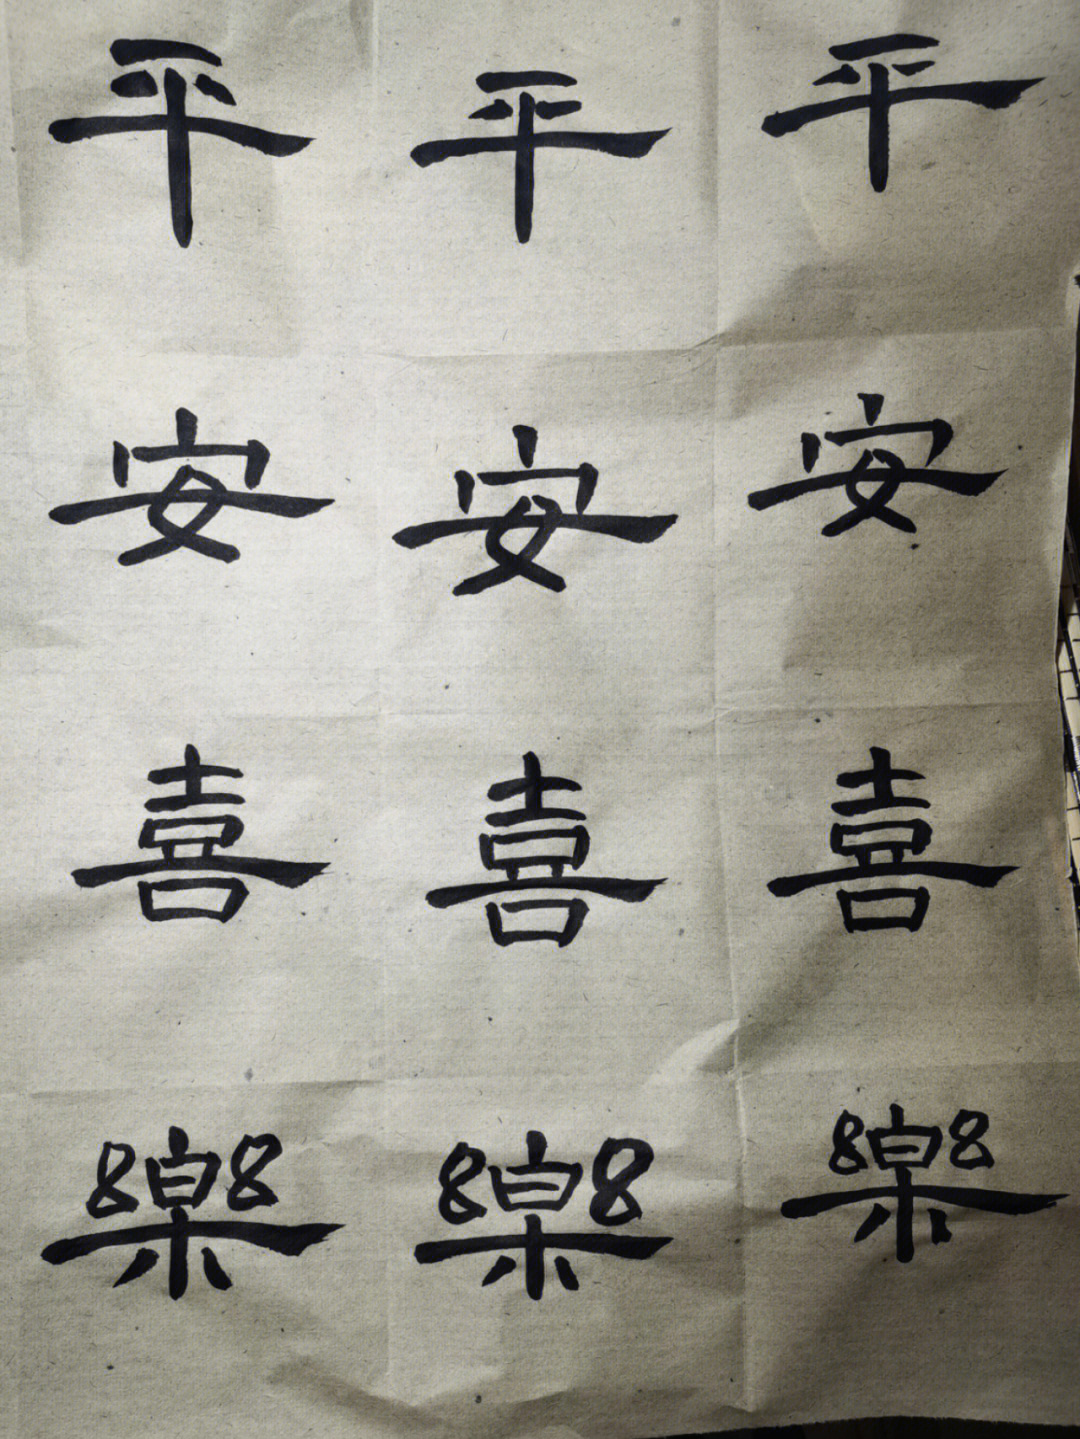 平平平
安安安
喜喜喜
樂樂樂